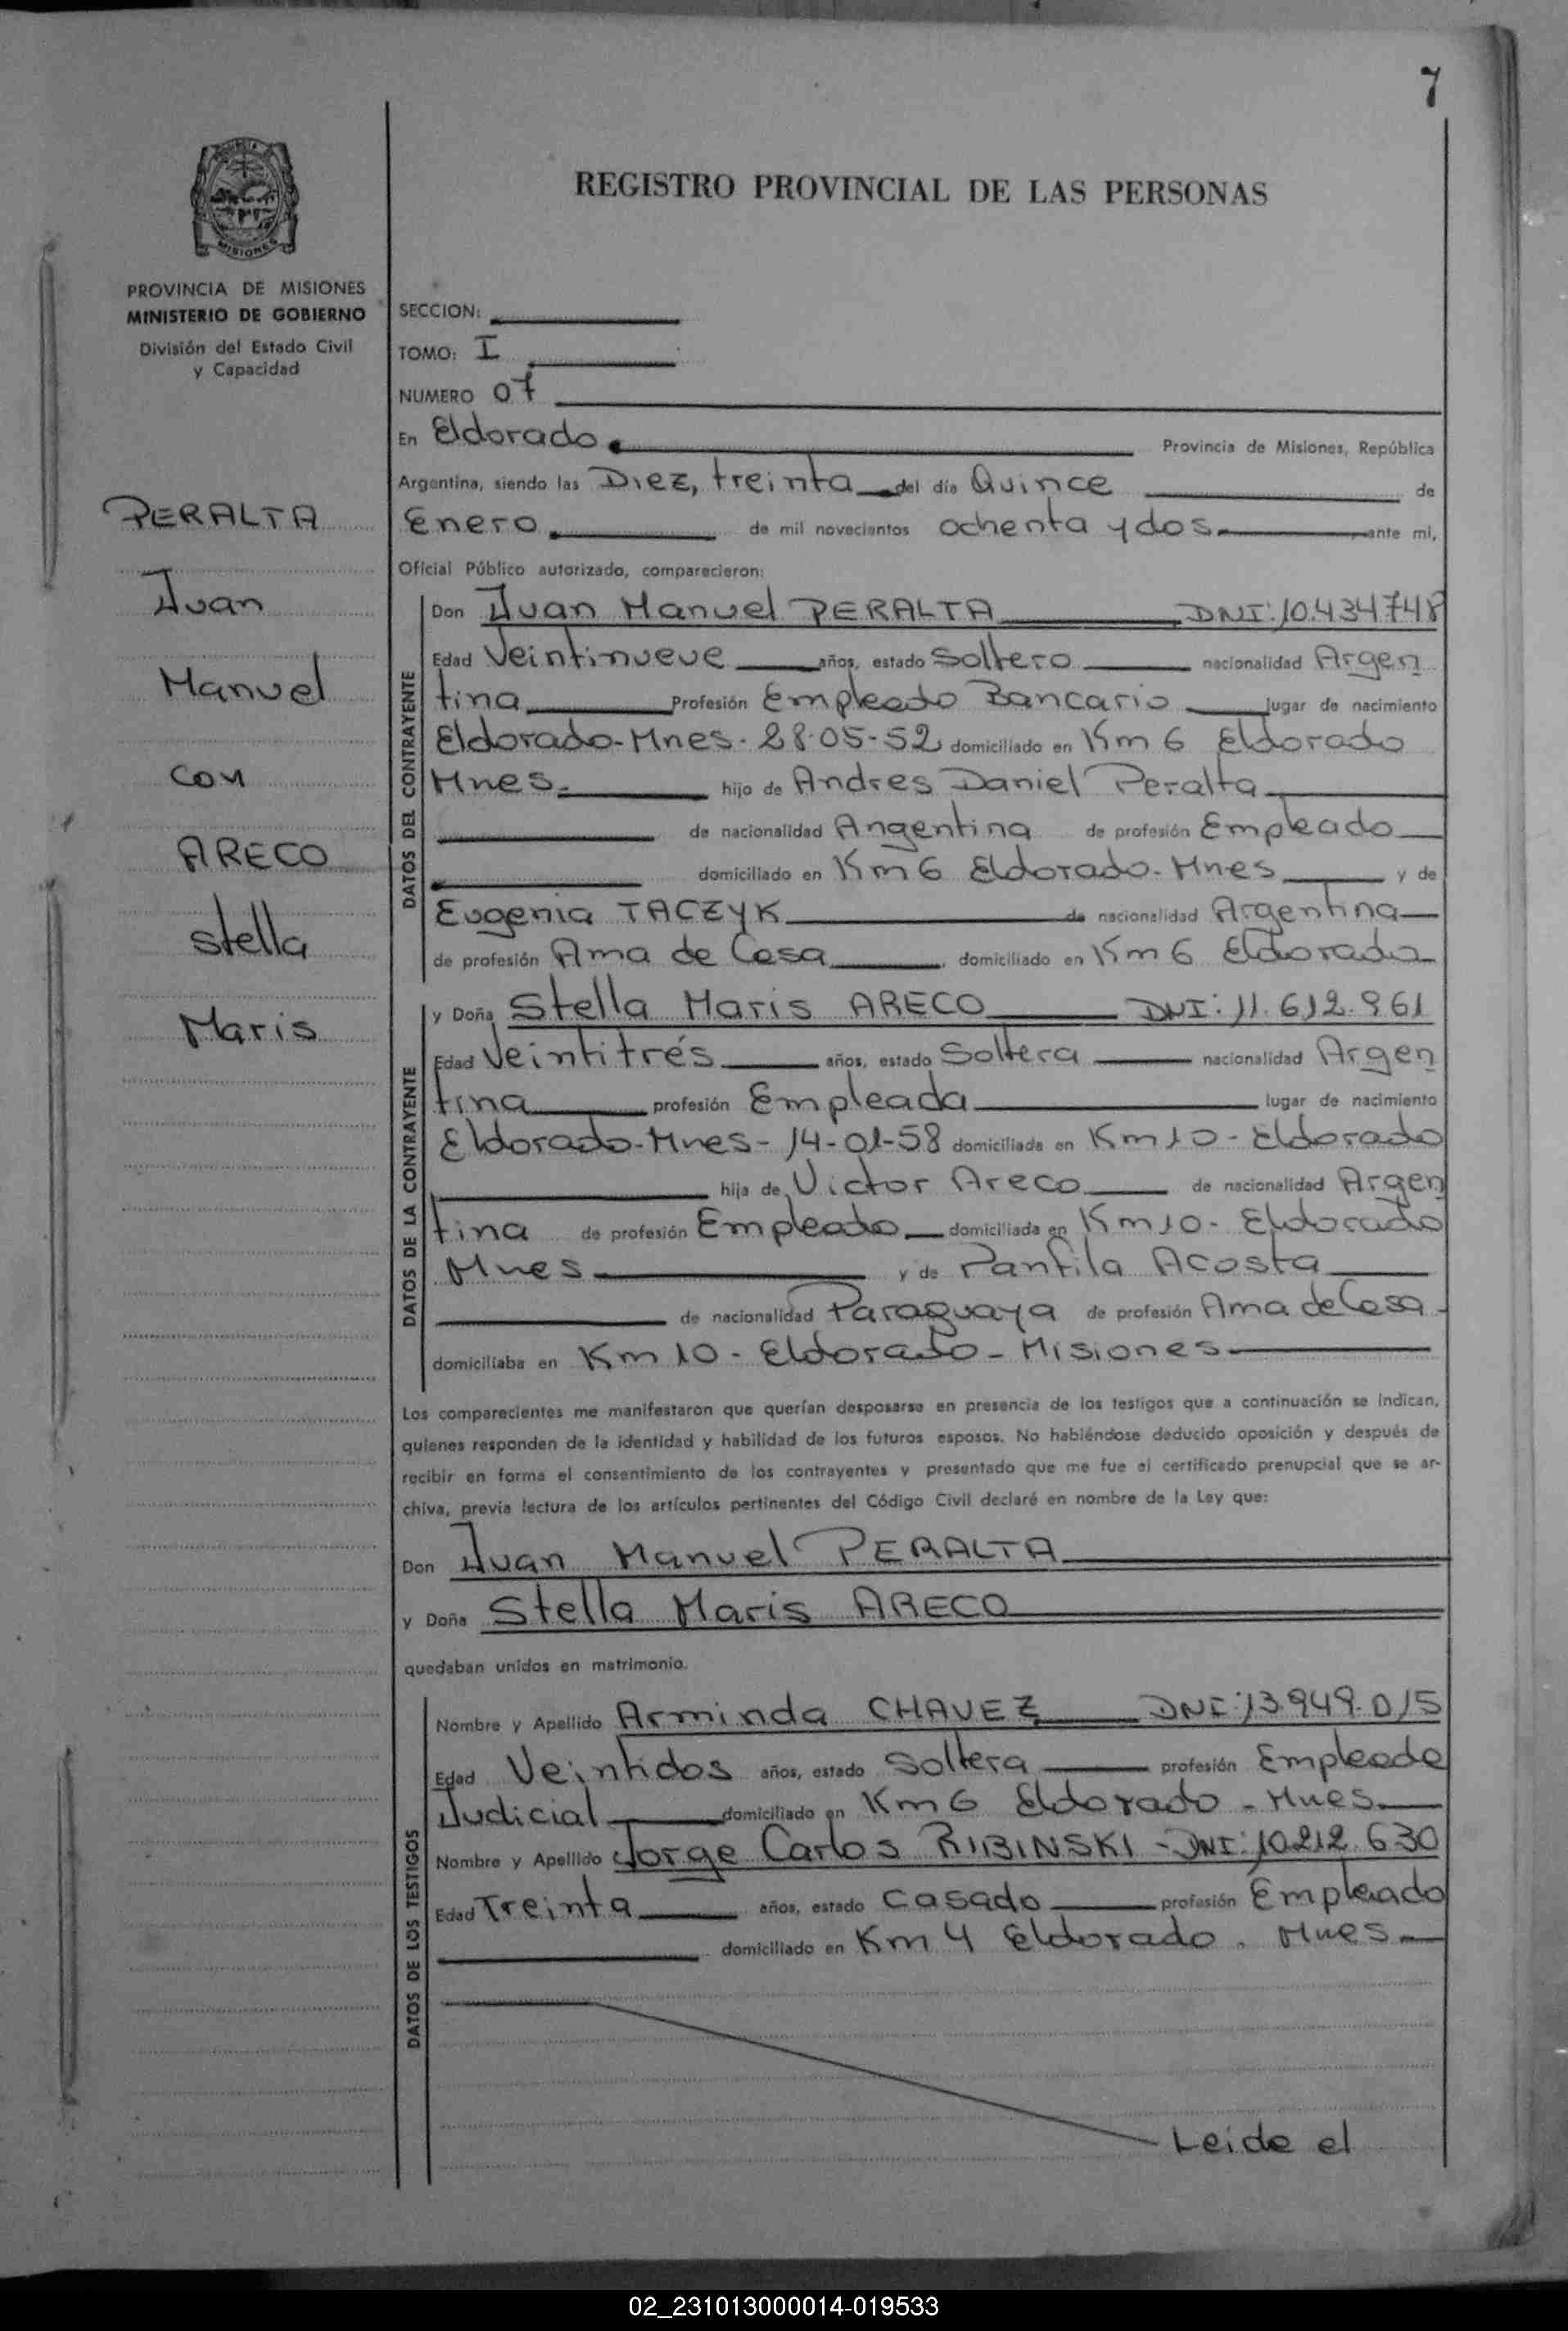 7
REPUBLICA
MISIONES
PROVINCIA DE MISIONES
MINISTERIO DE GOBIERNO
División del Estado Civil
y Capacidad
PERALTA
Juan
Manuel
con
ARECO
Stella
Maris
REGISTRO PROVINCIAL DE LAS PERSONAS
SECCION:
TOMO: I
NUMERO 07
En Eldorado. Provincia de Misiones, República
Argentina, siendo las Diez, treinta del día Quince de
Enero. de mil novecientos ochenta y dos ante mi,
Oficial Público autorizado, comparecieron:
DATOS DEL CONTRAYENTE
Don Juan Manuel PERALTA DNI: 10.434748
Edad Veintinueve años, estado Soltero nacionalidad Argen
tina Profesión Empleado Bancario lugar de nacimiento
Eldorado-Mnes- 28-05-52 domiciliado en Km 6 Eldorado
Mnes. hijo de Andres Daniel Peralta
de nacionalidad Angentina de profesión Empleado
domiciliado en Km 6 Eldorado- Mnes y de
Eugenia TACZYK de nacionalidad Argentina
de profesión Ama de Casa, domiciliado en Km 6 Eldorado
DATOS DE LA CONTRAYENTE
y Doña Stella Maris ARECO DNI: 11.612.961
Edad Veintitrés años, estado Soltera nacionalidad Argen
tina profesión Empleada lugar de nacimiento
Eldorado-Mnes- 14-01-58 domiciliada en Km 10 - Eldorado
hija de Victor Areco de nacionalidad Argen
tina de profesión Empleado domiciliada en Km 10- Eldorado
Mnes y de Panfila Acosta
de nacionalidad Paraguaya de profesión Ama de Casa
domiciliaba en Km 10 - Eldorado - Misiones
Los comparecientes me manifestaron que querían desposarse en presencia de los testigos que a continuación se indican,
quienes responden de la identidad y habilidad de los futuros esposos. No habiéndose deducido oposición y después de
recibir en forma el consentimiento de los contrayentes y presentado que me fue el certificado prenupcial que se ar-
chiva, previa lectura de los artículos pertinentes del Código Civil declaré en nombre de la Ley que:
Don Juan Manuel PERALTA
y Doña Stella Maris ARECO
quedaban unidos en matrimonio.
DATOS DE LOS TESTIGOS
Nombre y Apellido Arminda CHAVEZ DNI: 13.949.015
Edad Veintidos años, estado Soltera profesión Empleada
Judicial domiciliado en Km 6 Eldorado - Mnes.
Nombre y Apellido Jorge Carlos RIBINSKI - DNI: 10.212.630
Edad Treinta años, estado Casado profesión Empleado
domiciliado en Km 4 Eldorado. Mnes
Leida el
02_231013000014-019533